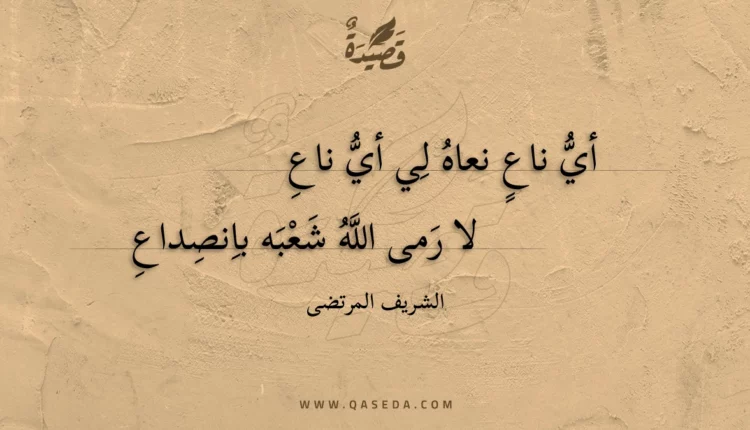 قَصِيْدَةٌ
أيُّ ناعٍ نعاهُ لِي أيُّ ناعِ
لا رَمى اللَّهُ شَعْبَه باِنصِداعِ
الشريف المرتضى
WWW.QASEDA.COM